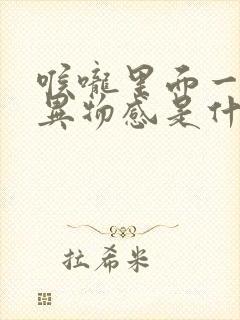 喉咙里面一
异物感是什
拉希米